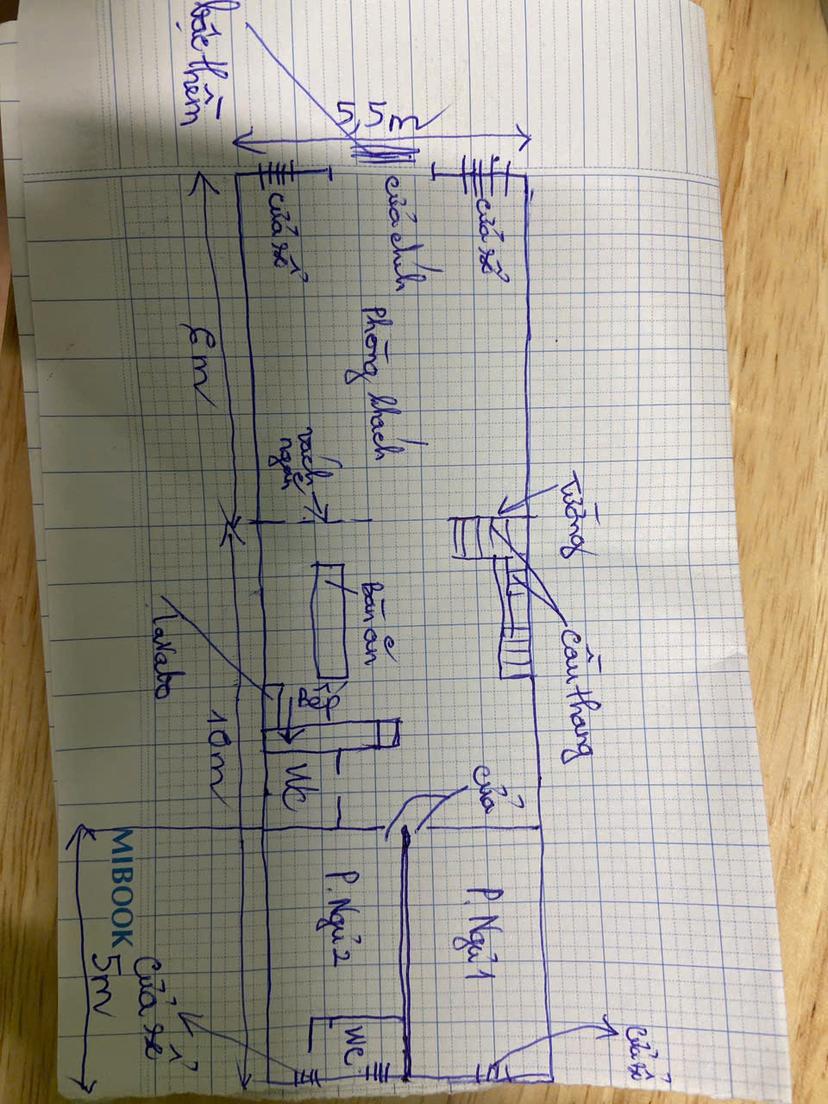 bậc thềm
5,5m
cửa sổ
cửa chính
cửa sổ
6m
Phòng khách
vách
ngăn
Tường
Bàn ăn
Cầu thang
lavabo
10m
WC
cửa
MIBOOK
P. Ngủ 2
P. Ngủ 1
5m
Cửa sổ
WC
cửa sổ